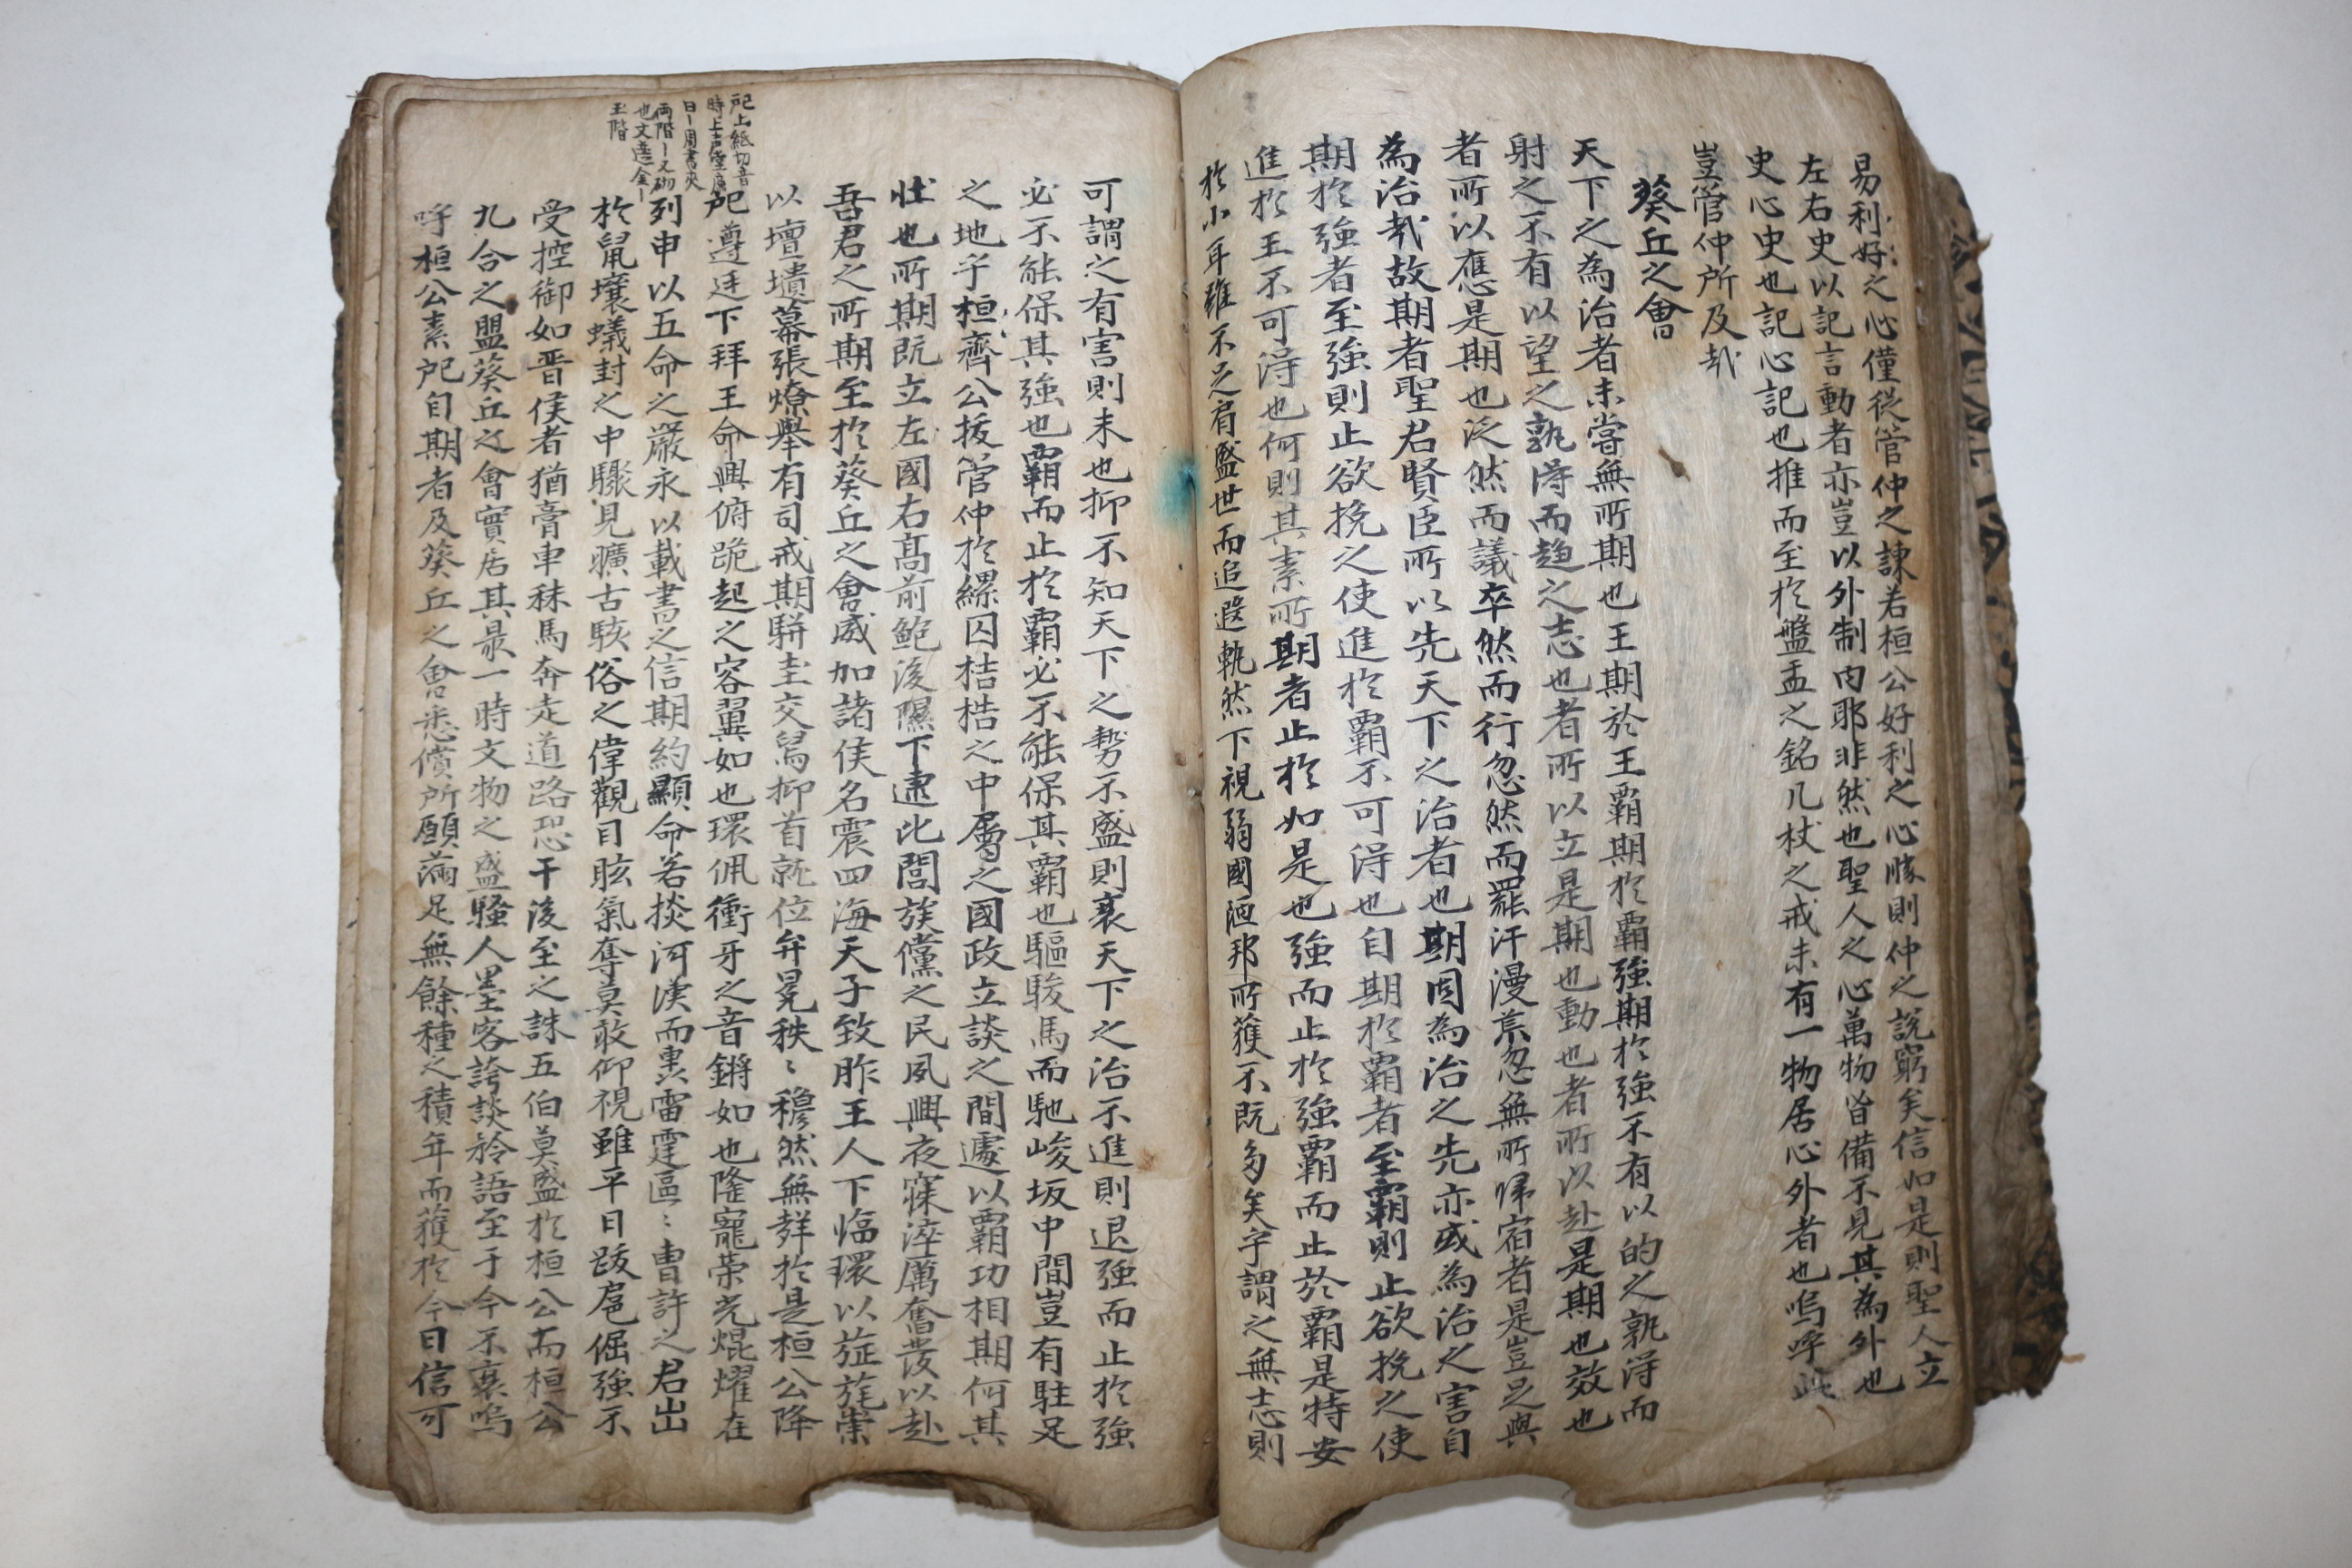 易利好之心僅從管仲之諫若桓公好利之心勝則仲之說窮矣信如是則聖人立
左右史以記言動者亦豈以外制內耶非然也聖人之心萬物皆備不見其為外也
史心史也記心記也推而至於盤盂之銘几杖之戒未有一物居心外者也嗚呼此
豈管仲所及哉
葵丘之會
天下之為治者未嘗無所期也王期於王霸期於霸強期於強不有以的之孰得而
射之不有以望之孰得而趨之志也者所以立是期也動也者所以赴是期也效也
者所以應是期也泛然而議卒然而行忽然而罷汗漫荒忽無所歸宿者是豈足與
為治哉故期者聖君賢臣所以先天下之治者也期固為治之先亦或為治之害自
期於強者至強則止欲挽之使進於霸不可得也自期於霸者至霸則止欲挽之使
進於王不可得也何則其素所期者止於如是也強而止於強霸而止於霸是特安
於小耳雖不足肩盛世而追遐軌然下視弱國陋邦所獲不既多矣乎謂之無志則
可謂之有害則未也抑不知天下之勢不盛則衰天下之治不進則退強而止於強
必不能保其強也霸而止於霸必不能保其霸也驅駿馬而馳峻坂中間豈有駐足
之地乎桓齊公拔管仲於縲囚桎梏之中屬之國政立談之間遽以霸功相期何其
壯也所期既立左國右高前鮑後隰下逮比閭族黨之民夙興夜寐淬厲奮發以赴
吾君之所期至於葵丘之會威加諸侯名震四海天子致胙王人下臨環以旌旄崇
以壇墠幕張燎舉有司戒期駢圭交舄抑首就位弁冕秩〻穆然無譁於是桓公降
戺遵廷下拜王命興俯跪起之容翼如也環佩衝牙之音鏘如也隆寵榮光焜燿在
列申以五命之嚴永以載書之信期約顯命若掞河漢而裹雷霆區〻曹許之君出
於鼠壤蟻封之中驟見曠古駭俗之偉觀目眩氣奪莫敢仰視雖平日跋扈倔強不
受控御如晋侯者猶膏車秣馬奔走道路恐干後至之誅五伯莫盛於桓公而桓公
九合之盟葵丘之會實居其最一時文物之盛騷人墨客誇談矜語至于今不衰嗚
呼桓公素所自期者及葵丘之會悉償所願滿足無餘種之積年而獲於今日信可
戺上紙切音
時上声堂廉
曰〡周書夾
両階〡又砌
也文選金〡
玉階